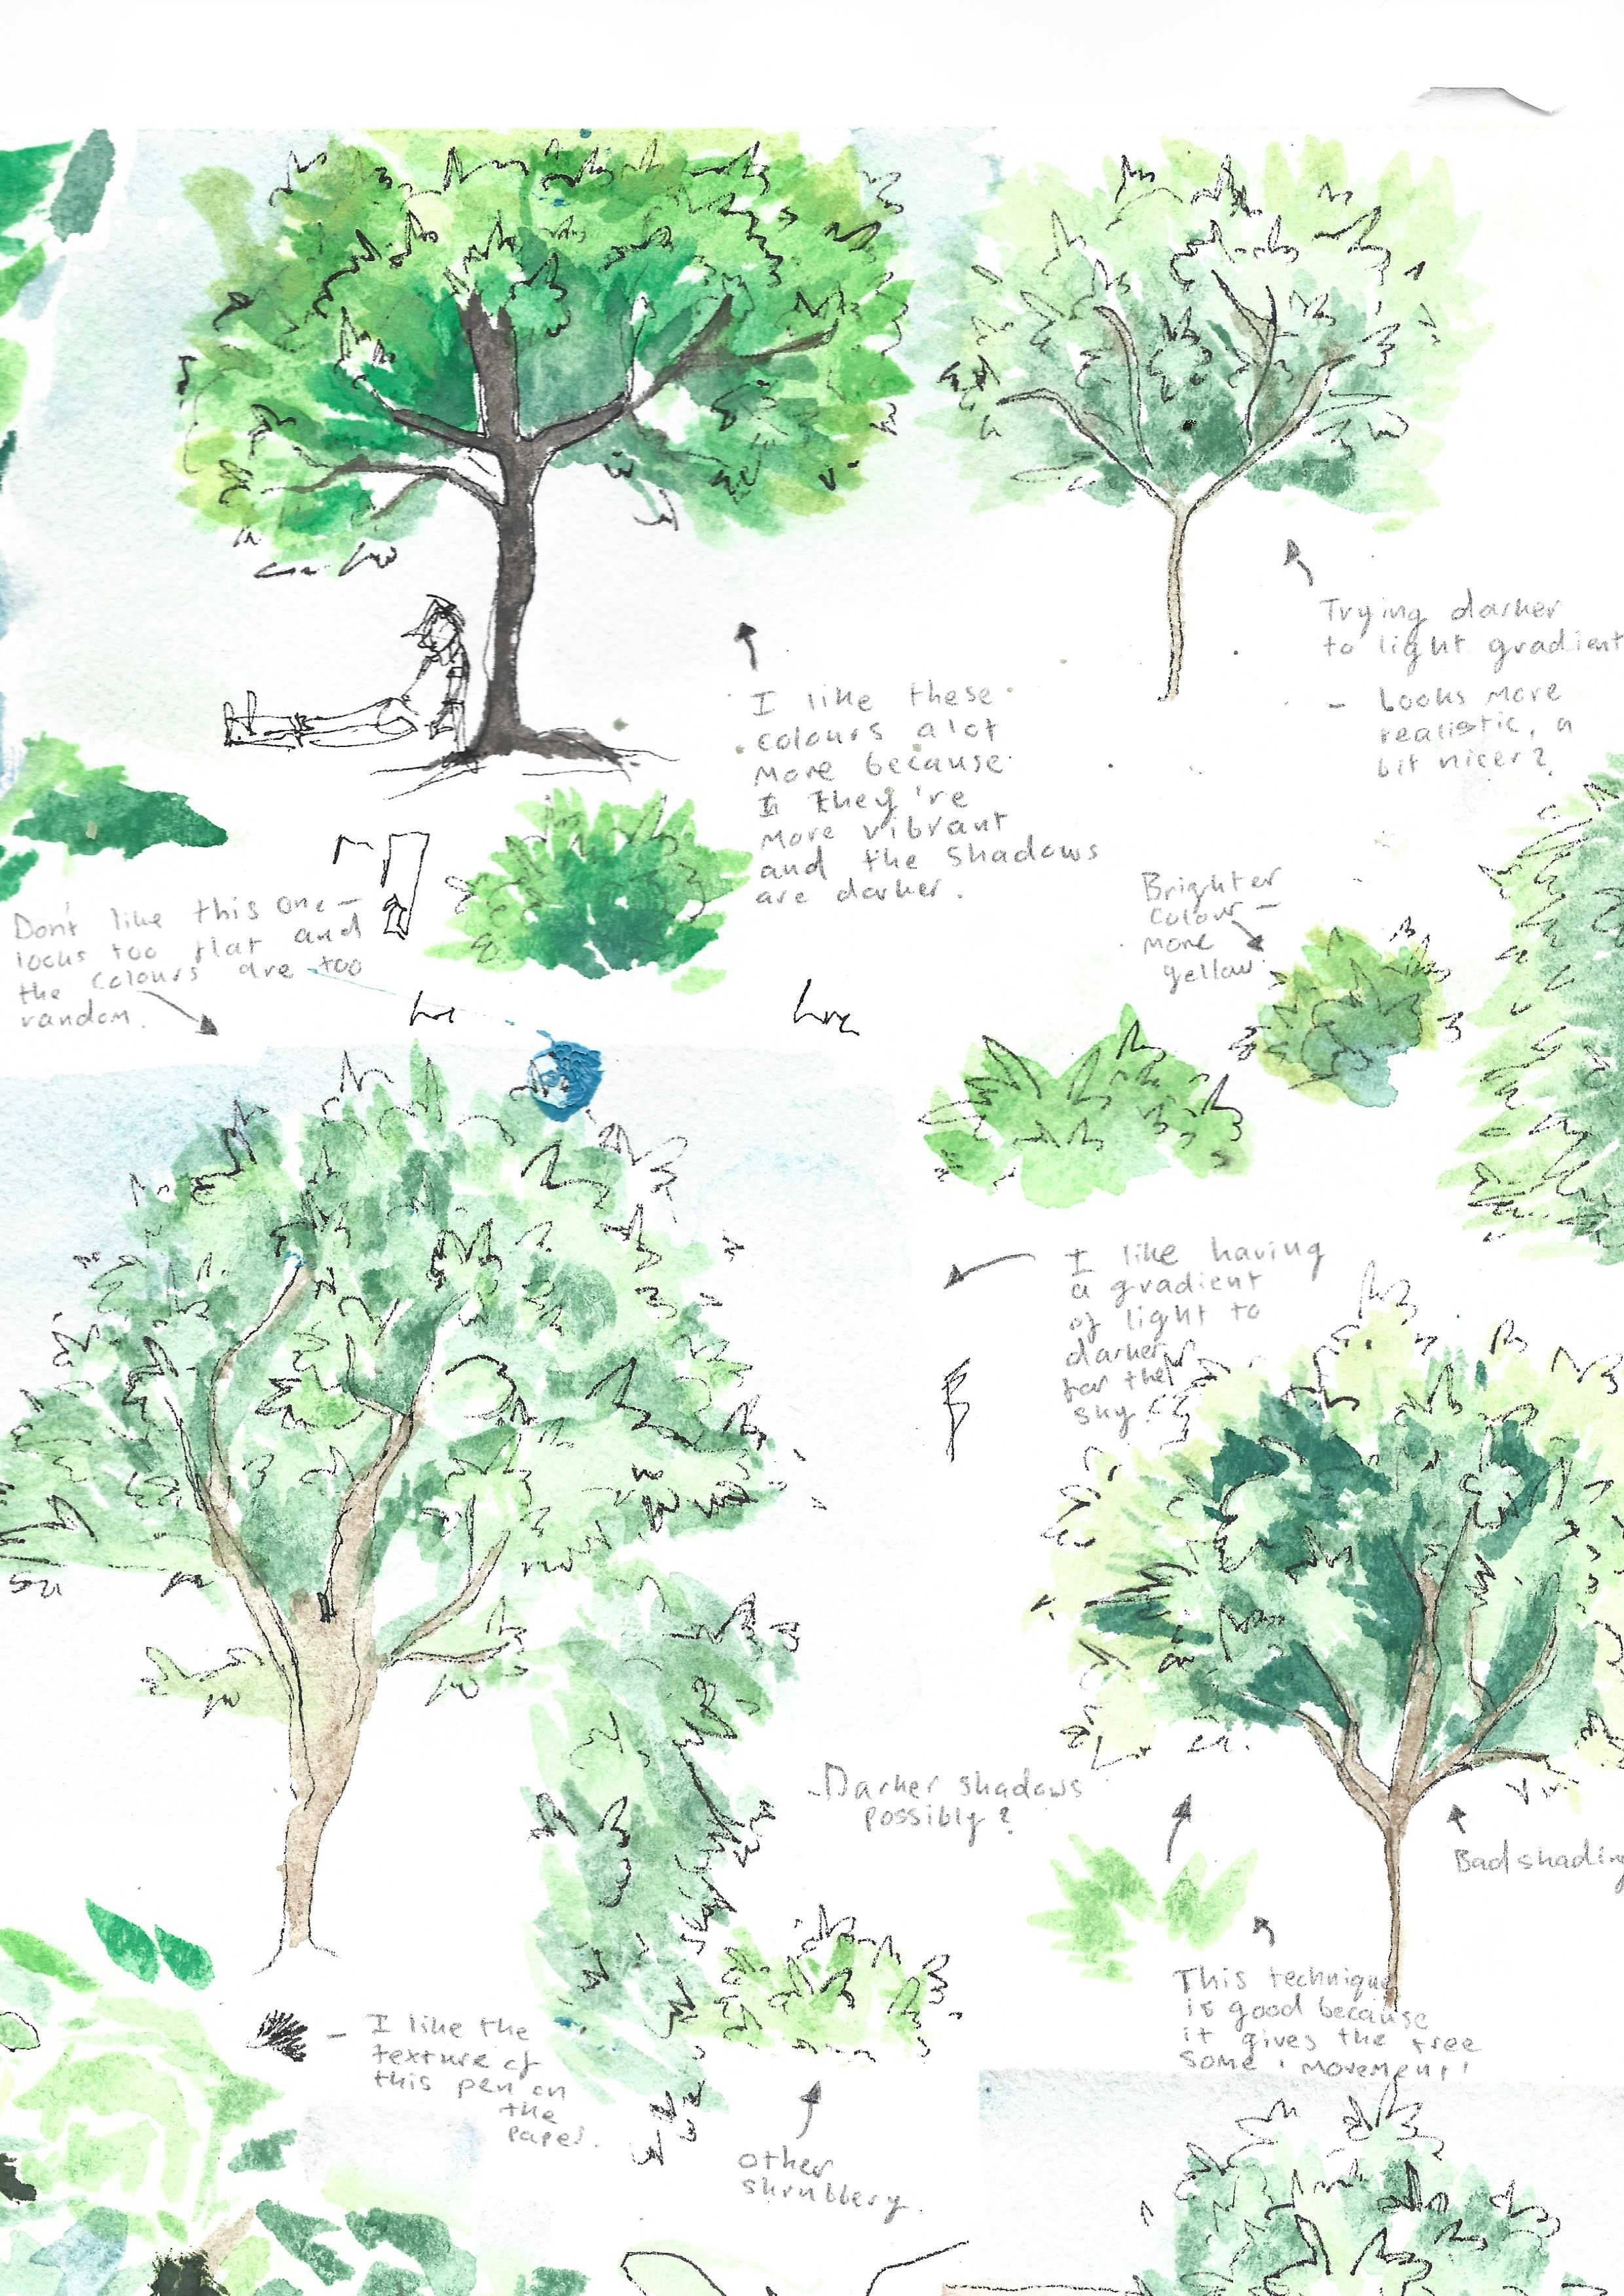 Trying darker
to light gradient
- Looks more
realistic, a
bit nicer?
I like these
colours alot
more because
they're
more vibrant
and the shadows
are darker.
Brighter
colour -
more
yellow
Don't like this one -
looks too flat and
the colours are too
random.
I like having
a gradient
of light to
darker
for the
sky.
Darker shadows
possibly?
Bad shading
This technique
is good because
it gives the tree
some 'movement'
- I like the
texture of
this pen on
the
paper.
other
shrubbery.